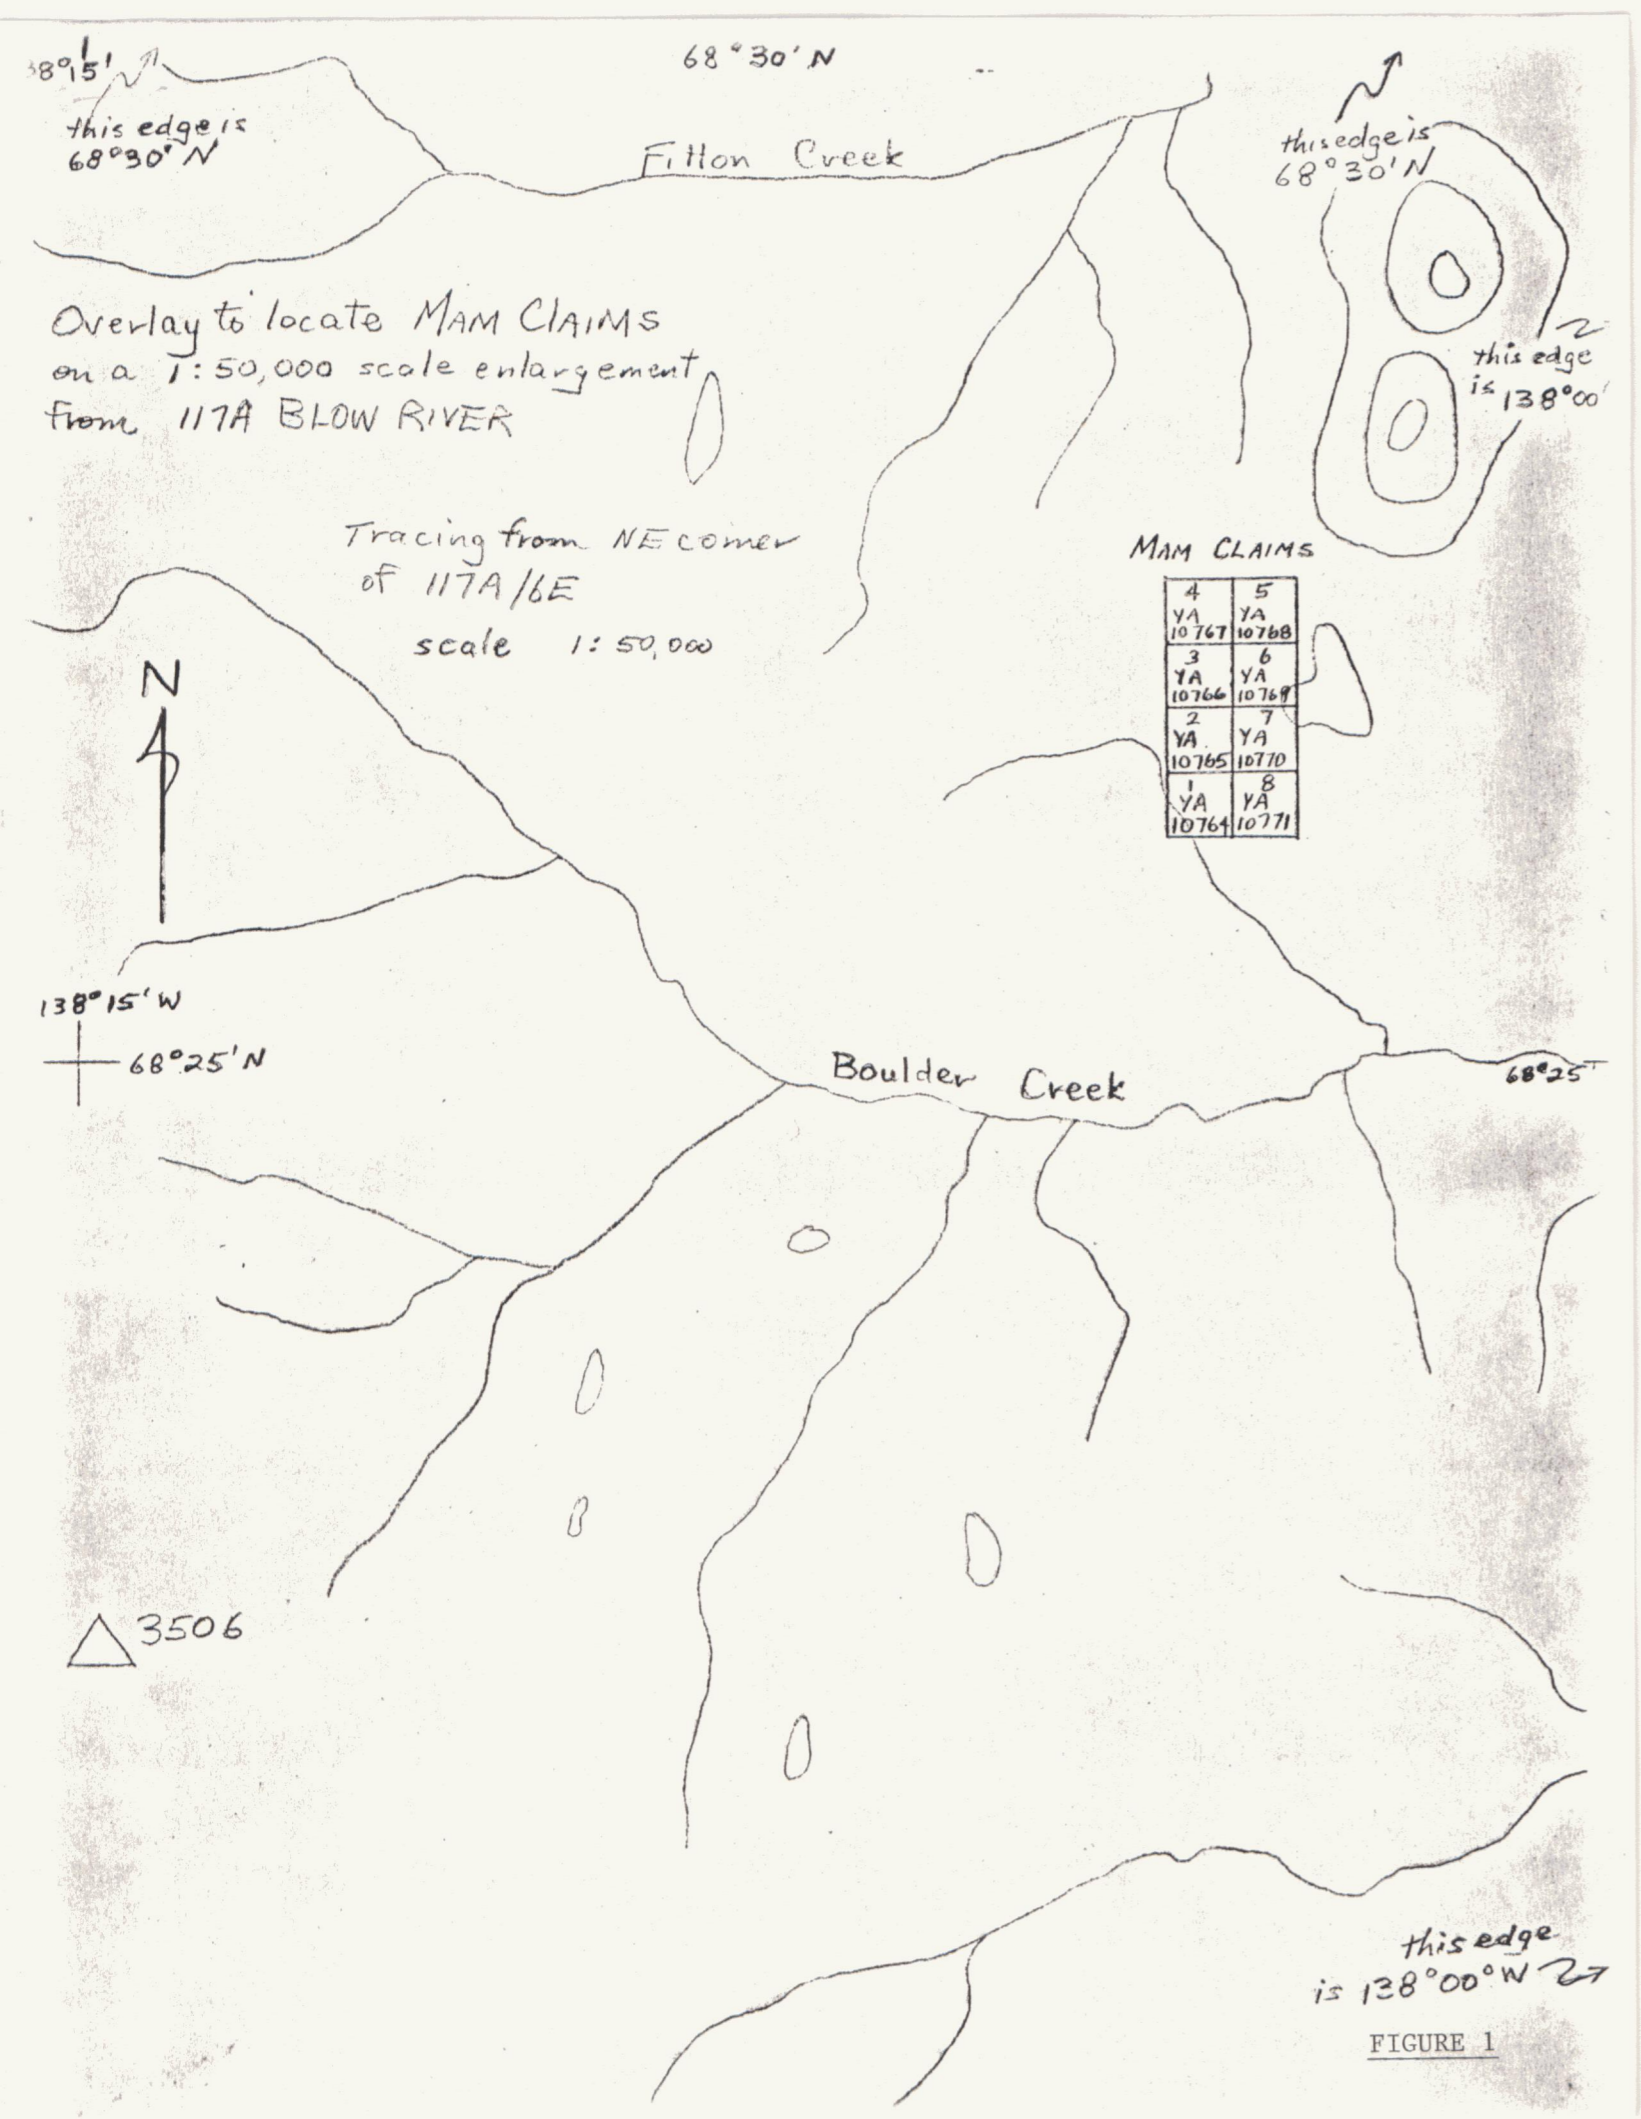 38°15'
68°30'N
this edge is
68°30'N
Fitton Creek
this edge is
68°30'N
Overlay to locate MAM CLAIMS
on a 1:50,000 scale enlargement
from 117A BLOW RIVER
this edge
is 138°00'
Tracing from NE corner
of 117A/6E
scale 1:50,000
MAM CLAIMS
4 5
YA YA
10767 10768
3 6
YA YA
10766 10769
2 7
YA YA
10765 10770
1 8
YA YA
10764 10771
N
138°15'W
68°25'N
Boulder Creek
68°25'
3506
this edge
is 138°00°W
FIGURE 1